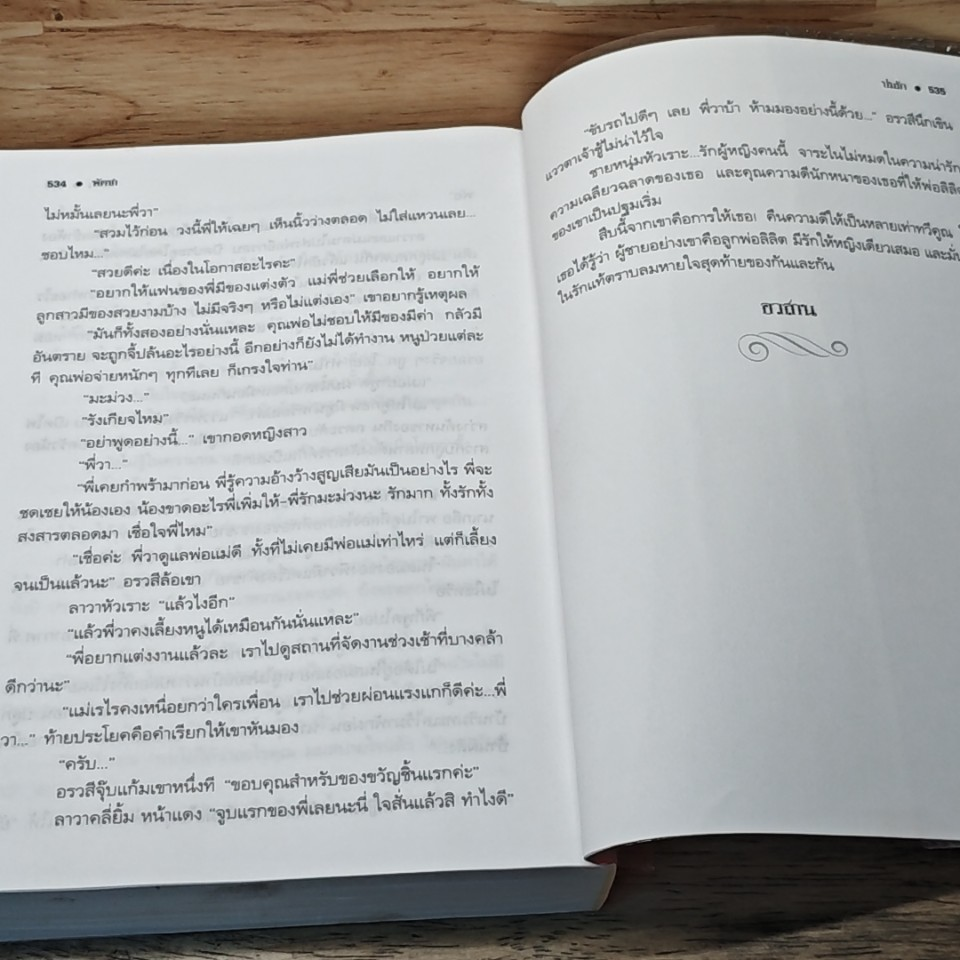 534 ●
ไม่หมั้นเลยนะพี่วา"
"สวมไว้ก่อน วงนี้พี่ให้เฉยๆ เห็นนิ้วว่างตลอด ไม่ใส่แหวนเลย...
ชอบไหม..."
"สวยดีค่ะ เนื่องในโอกาสอะไรคะ"
"อยากให้แฟนของพี่มีของแต่งตัว แม่พี่ช่วยเลือกให้ อยากให้
ลูกสาวมีของสวยงามบ้าง ไม่มีจริงๆ หรือไม่แต่งเอง" เขาอยากรู้เหตุผล
"มันก็ทั้งสองอย่างนั่นแหละ คุณพ่อไม่ชอบให้มีของมีค่า กลัวมี
อันตราย จะถูกจี้ปล้นอะไรอย่างนี้ อีกอย่างก็ยังไม่ได้ทำงาน หนูป่วยแต่ละ
ที คุณพ่อจ่ายหนักๆ ทุกทีเลย ก็เกรงใจท่าน"
"มะม่วง..."
"รังเกียจไหม"
"อย่าพูดอย่างนี้..." เขากอดหญิงสาว
"พี่วา..."
"พี่เคยกำพร้ามาก่อน พี่รู้ความอ้างว้างสูญเสียมันเป็นอย่างไร พี่จะ
ชดเชยให้น้องเอง น้องขาดอะไรพี่เพิ่มให้-พี่รักมะม่วงนะ รักมาก ทั้งรักทั้ง
สงสารตลอดมา เชื่อใจพี่ไหม"
"เชื่อค่ะ พี่วาดูแลพ่อแม่ดี ทั้งที่ไม่เคยมีพ่อแม่เท่าไหร่ แต่ก็เลี้ยง
จนเป็นแล้วนะ" อรวสีล้อเขา
ลาวาหัวเราะ "แล้วไงอีก"
"แล้วพี่วาคงเลี้ยงหนูได้เหมือนกันนั่นแหละ"
"พี่อยากแต่งงานแล้วละ เราไปดูสถานที่จัดงานช่วงเช้าที่บางคล้า
ดีกว่านะ"
"แม่เรไรคงเหนื่อยกว่าใครเพื่อน เราไปช่วยผ่อนแรงแกก็ดีค่ะ...พี่
วา..." ท้ายประโยคคือคำเรียกให้เขาหันมอง
"ครับ..."
อรวสีจุ๊บแก้มเขาหนึ่งที "ขอบคุณสำหรับของขวัญชิ้นแรกค่ะ"
ลาวาคลี่ยิ้ม หน้าแดง "จูบแรกของพี่เลยนะนี่ ใจสั่นแล้วสิ ทำไงดี"
● 535
"ขับรถไปดีๆ เลย พี่วาบ้า ห้ามมองอย่างนี้ด้วย..." อรวสีนึกเขิน
แววตาเจ้าชู้ไม่น่าไว้ใจ
ชายหนุ่มหัวเราะ...รักผู้หญิงคนนี้ จาระไนไม่หมดในความน่ารัก
ความเฉลียวฉลาดของเธอ และคุณความดีนักหนาของเธอที่ให้พ่อลิลิต
ของเขาเป็นปฐมเริ่ม
สืบนี้จากเขาคือการให้เธอ! คืนความดีให้เป็นหลายเท่าทวีคูณ
เธอได้รู้ว่า ผู้ชายอย่างเขาคือลูกพ่อลิลิต มีรักให้หญิงเดียวเสมอ และมั่น
ในรักแท้ตราบลมหายใจสุดท้ายของกันและกัน
อวสาน